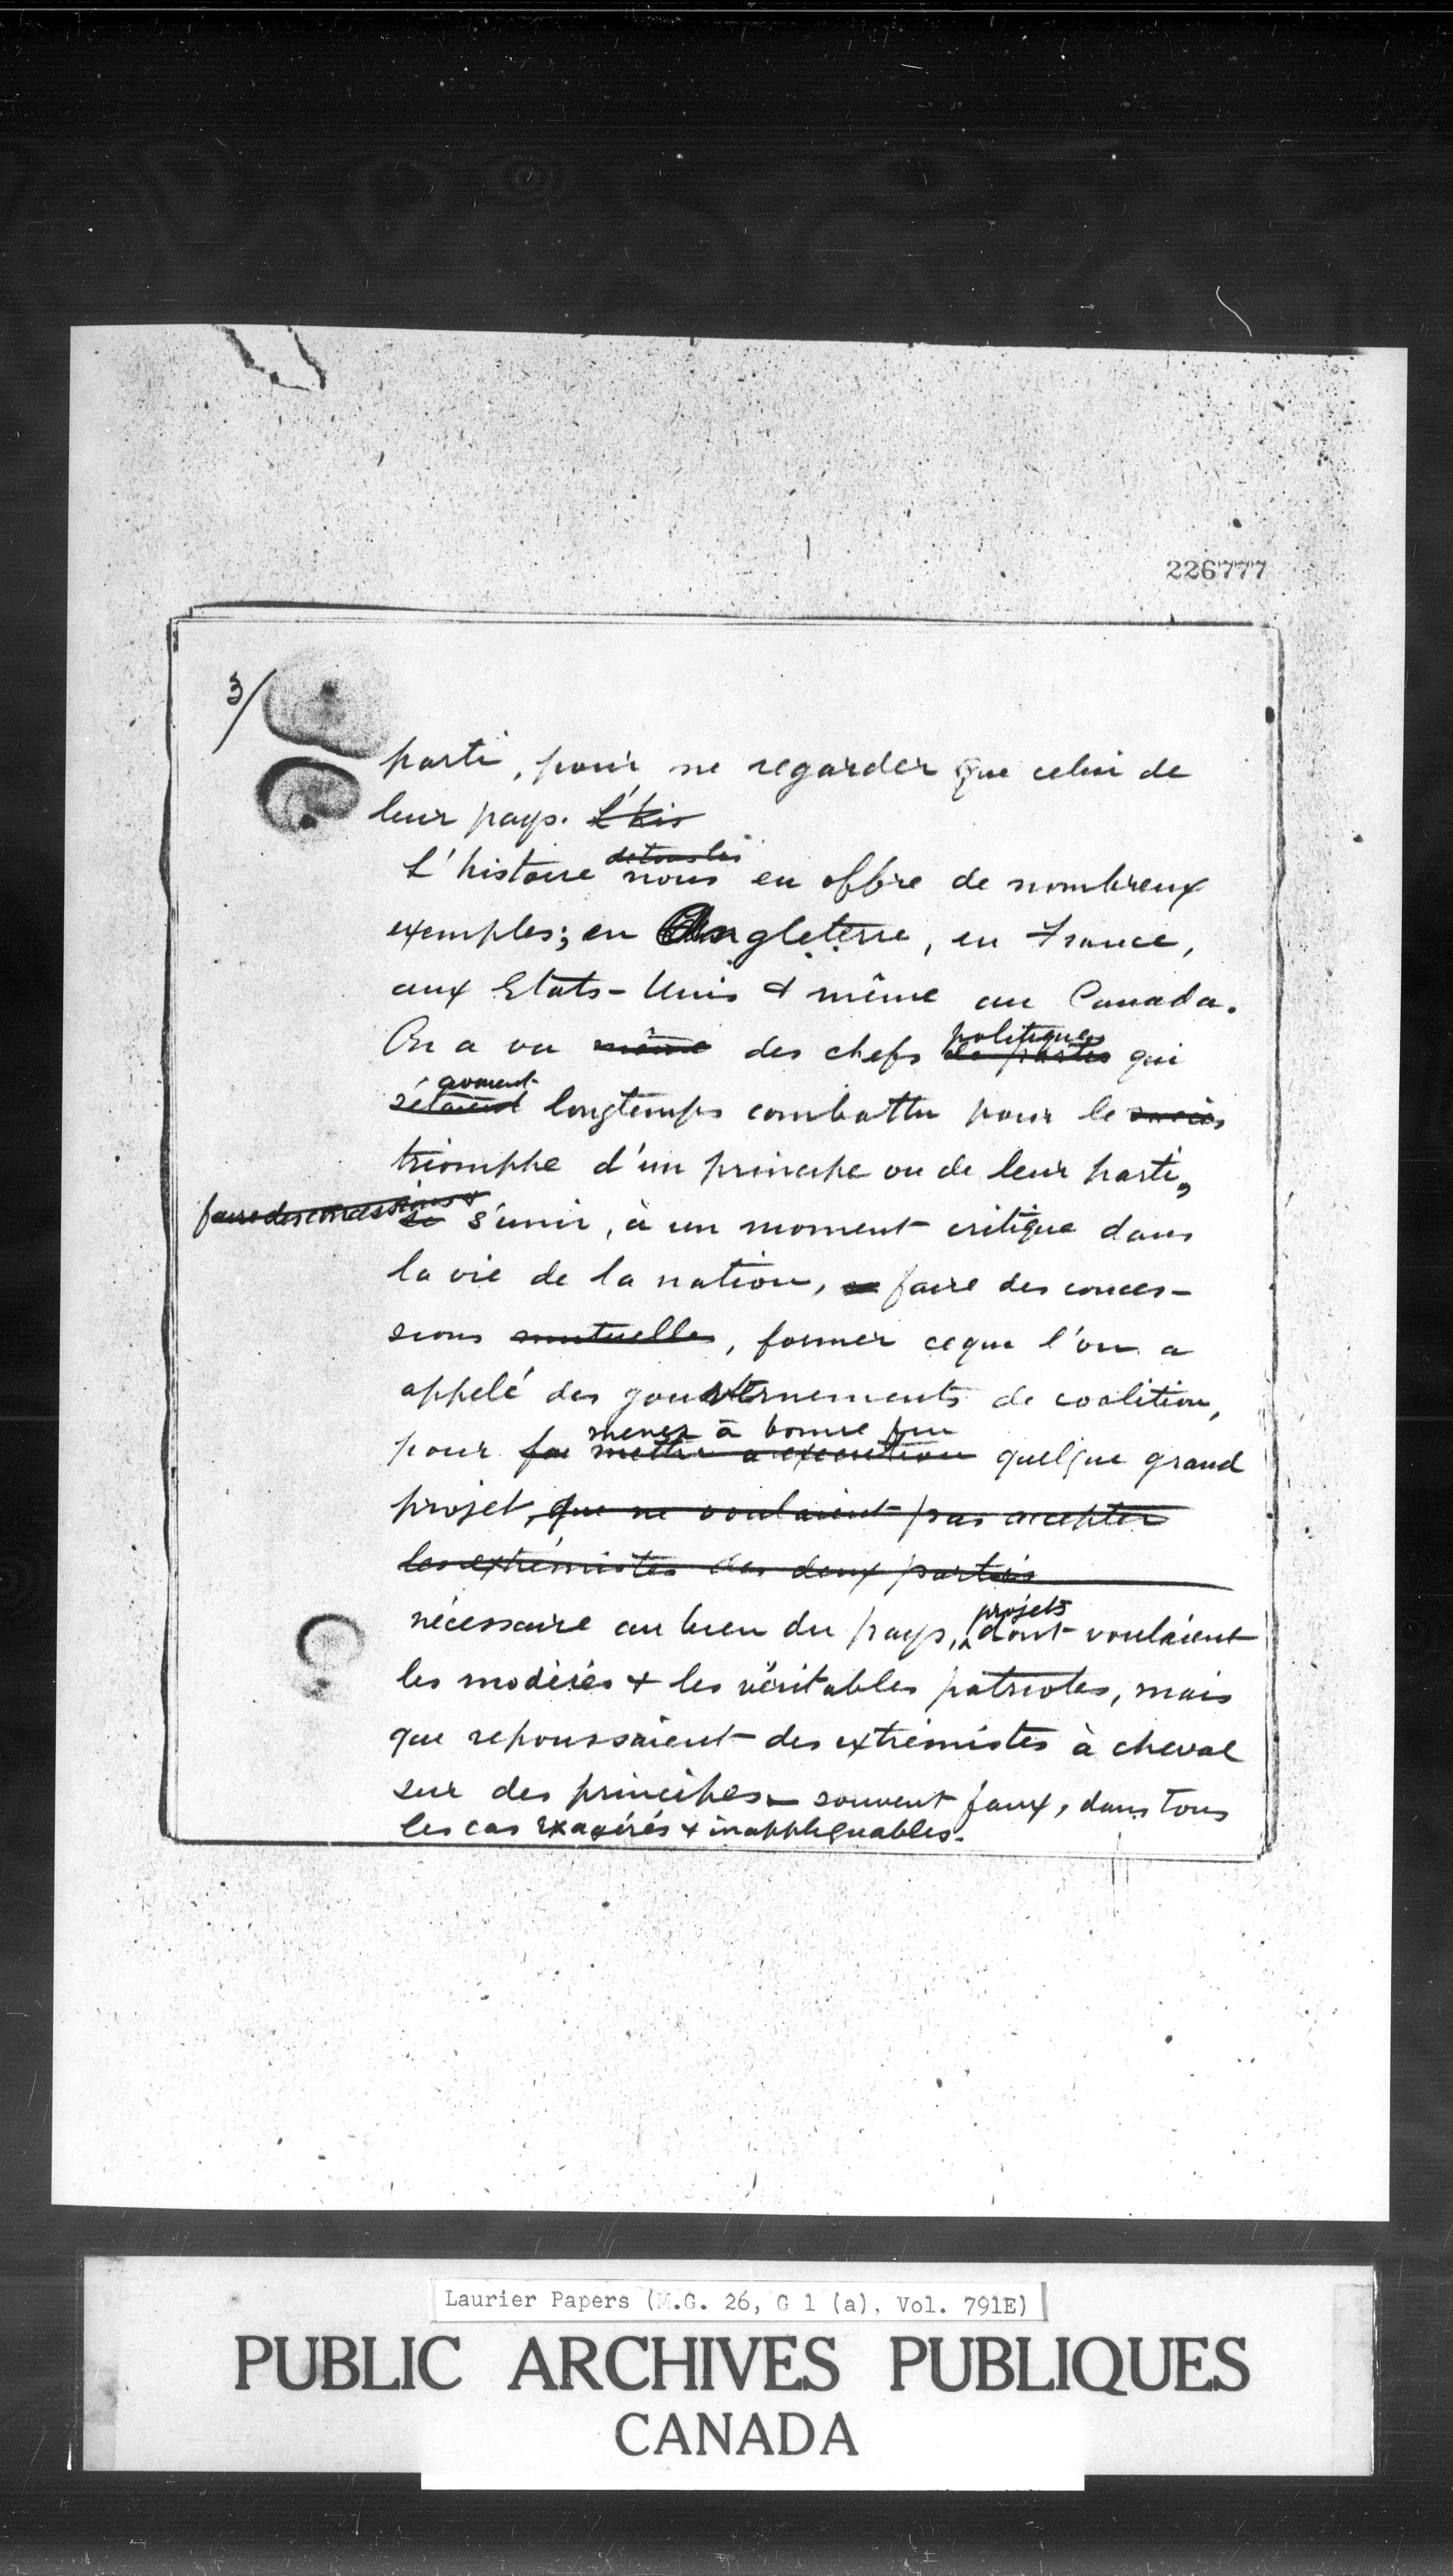 226777
3/
parti, pour ne regarder que celui de
leur pays. L'his
de tous les
L'histoire nous en offre de nombreux
exemples; en Angleterre, en France,
aux Etats-Unis & même au Canada.
politiques
On a vu même des chefs de partis qui
avaient
s'étaient longtemps combattu pour le succès
triomphe d'un principe ou de leur parti,
faire des concessions &
se s'unir, à un moment critique dans
la vie de la nation, faire des conces-
sions mutuelles, former ce que l'on a
appelé des gouvernements de coalition,
mener à bonne fin
pour fai mettre à exécution quelque grand
projet, que ne voulaient pas accepter
les extrémistes des deux partis
projets
nécessaire au bien du pays, dont voulaient
les modérés & les véritables patriotes, mais
que repoussaient des extrémistes à cheval
sur des principes souvent faux, dans tous
les cas exagérés & inappliquables.
Laurier Papers (M.G. 26, G 1 (a), Vol. 791E)
PUBLIC ARCHIVES PUBLIQUES
CANADA